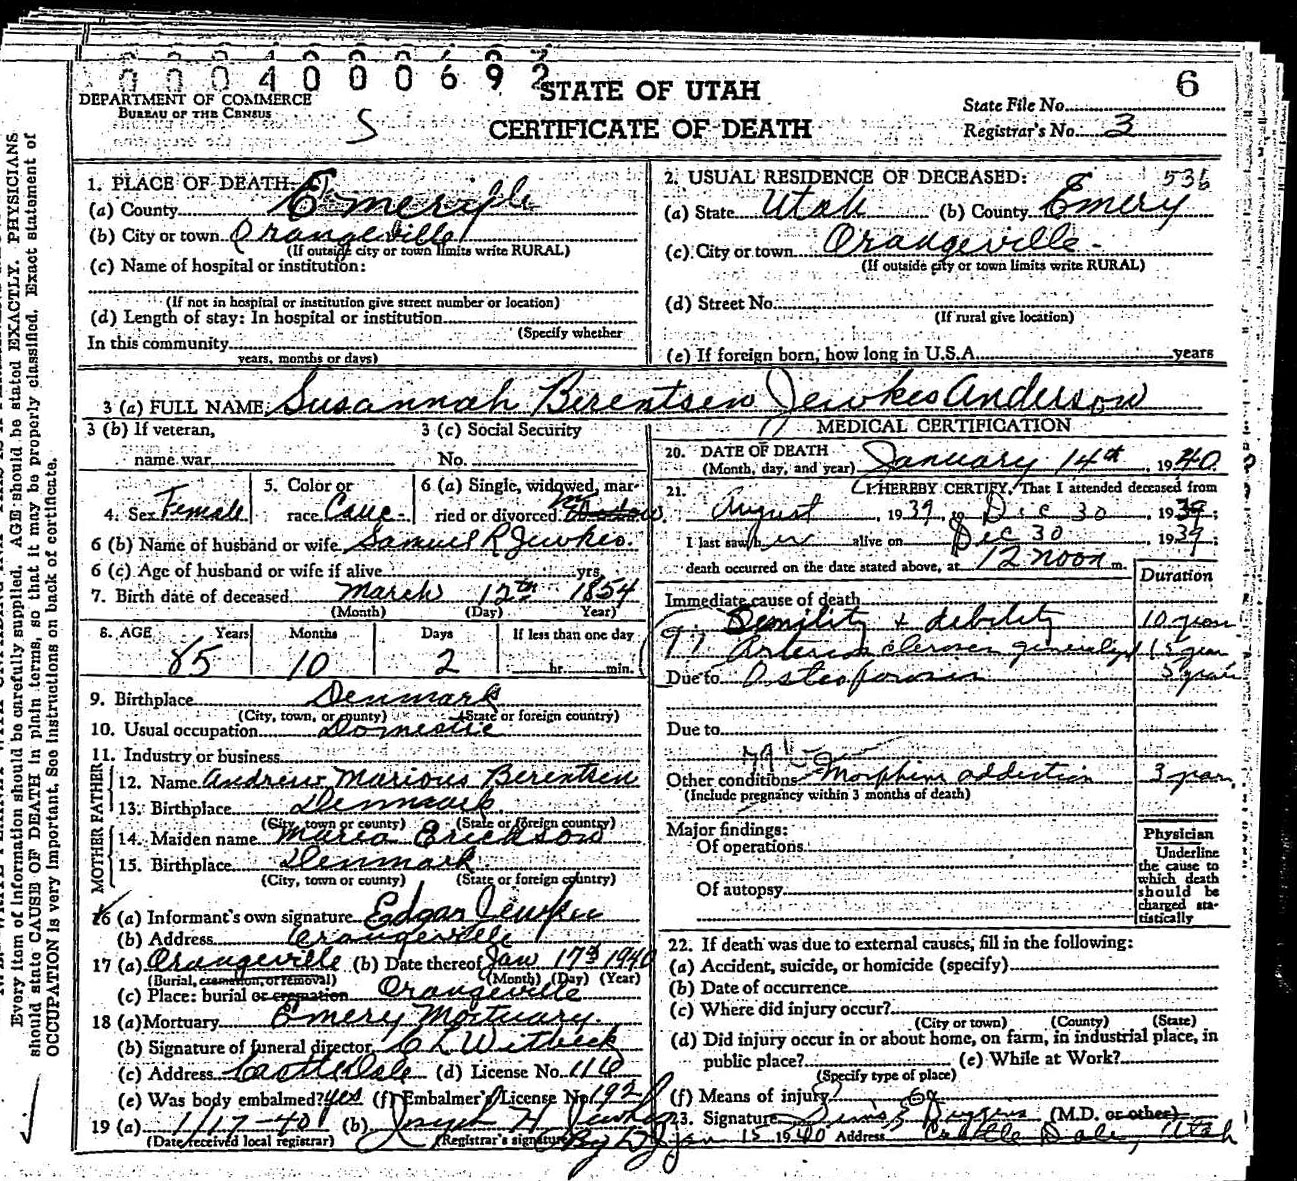 0004000692
STATE OF UTAH
CERTIFICATE OF DEATH
DEPARTMENT OF COMMERCE
BUREAU OF THE CENSUS
S
6
State File No.
Registrar's No. 3
1. PLACE OF DEATH:
(a) County Emery
(b) City or town Orangeville
(If outside city or town limits write RURAL)
(c) Name of hospital or institution:
(If not in hospital or institution give street number or location)
(d) Length of stay: In hospital or institution
(Specify whether
In this community
years, months or days)
2. USUAL RESIDENCE OF DECEASED: 536
(a) State Utah (b) County Emery
(c) City or town Orangeville
(If outside city or town limits write RURAL)
(d) Street No.
(If rural give location)
(e) If foreign born, how long in U.S.A. years
3 (a) FULL NAME Susannah Berentsen Jewkes Anderson
3 (b) If veteran, name war
3 (c) Social Security No.
4. Sex Female
5. Color or race Cauc-
6 (a) Single, widowed, married or divorced
6 (b) Name of husband or wife Samuel R Jewkes
6 (c) Age of husband or wife if alive yrs.
7. Birth date of deceased March 12th 1854
(Month) (Day) Year)
8. AGE Years Months Days If less than one day
85 10 2 hr. min.
9. Birthplace Denmark
(City, town, or county) (State or foreign country)
10. Usual occupation Domestic
11. Industry or business
FATHER
12. Name Andrew Marious Berentsen
13. Birthplace Denmark
(City, town or county) (State or foreign country)
MOTHER
14. Maiden name Maria Erickson
15. Birthplace Denmark
(City, town or county) (State or foreign country)
16 (a) Informant's own signature Edgar Jewkes
(b) Address Orangeville
17 (a) Orangeville (b) Date thereof Jan 17th 1940
(Burial, cremation, or removal) (Month) (Day) (Year)
(c) Place: burial or cremation Orangeville
18 (a) Mortuary Emery Mortuary
(b) Signature of funeral director C L Witbeck
(c) Address Castledale (d) License No. 116
(e) Was body embalmed? yes (f) Embalmer's License No. 192
19 (a) 1/17-40 (b) Joseph H Jewkes
(Date received local registrar) (Registrar's signature)
MEDICAL CERTIFICATION
20. DATE OF DEATH
(Month, day, and year) January 14th, 1940
21. I HEREBY CERTIFY, That I attended deceased from
August, 1939, to Dec 30, 1939;
I last saw her alive on Dec 30, 1939;
death occurred on the date stated above, at 12 noon m.
Duration
Immediate cause of death
Senility & debility 10 year
Arterio sclerosis 15 year
Due to 5 year
Due to
Other conditions Morphine addiction 3 year
(Include pregnancy within 3 months of death)
Major findings:
Of operations
Of autopsy
Physician
Underline
the cause to
which death
should be
charged sta-
tistically
22. If death was due to external causes, fill in the following:
(a) Accident, suicide, or homicide (specify)
(b) Date of occurrence
(c) Where did injury occur?
(City or town) (County) (State)
(d) Did injury occur in or about home, on farm, in industrial place, in
public place? (e) While at Work?
(Specify type of place)
(f) Means of injury
23. Signature (M.D. or other)
Jan 15 1940 Address Castle Dale, Utah
Every item of information should be carefully supplied. AGE should be stated EXACTLY. PHYSICIANS
should state CAUSE OF DEATH in plain terms, so that it may be properly classified. Exact statement of
OCCUPATION is very important. See instructions on back of certificate.